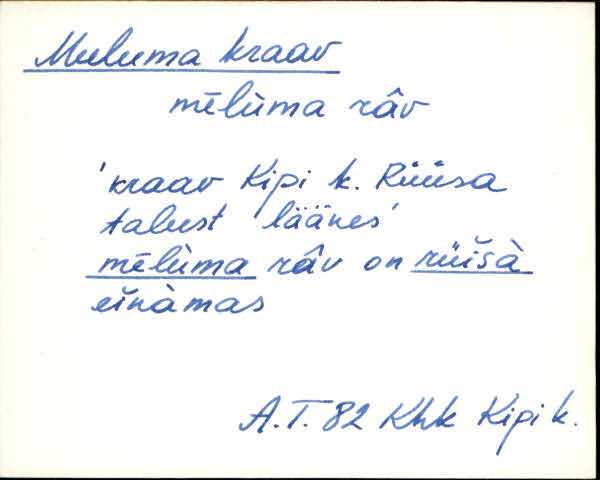 Muluma kraav
mēlùma râv
'kraav Kipi k. Rüüsa
talust läänes'
mēlùma râv on rüišà
eĭnàmas
A.T. 82 Khk Kipi k.